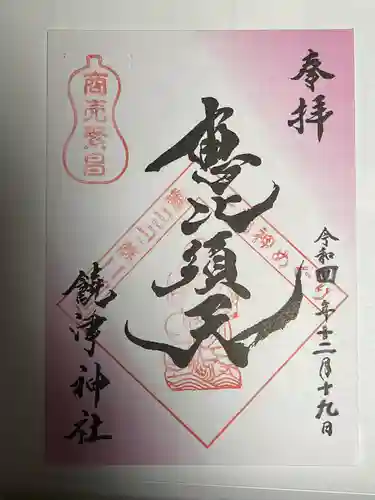 奉拝
令和四年十二月十九日
恵比須天
商売繁昌
饒津神社